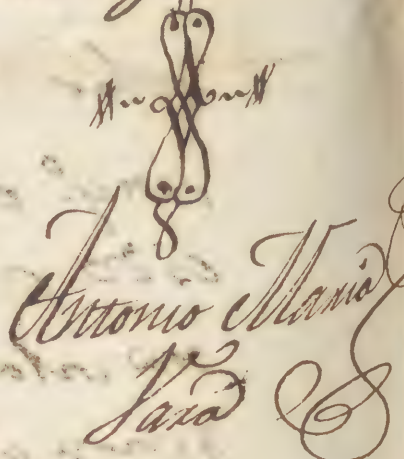 Antonio Maria
Lara